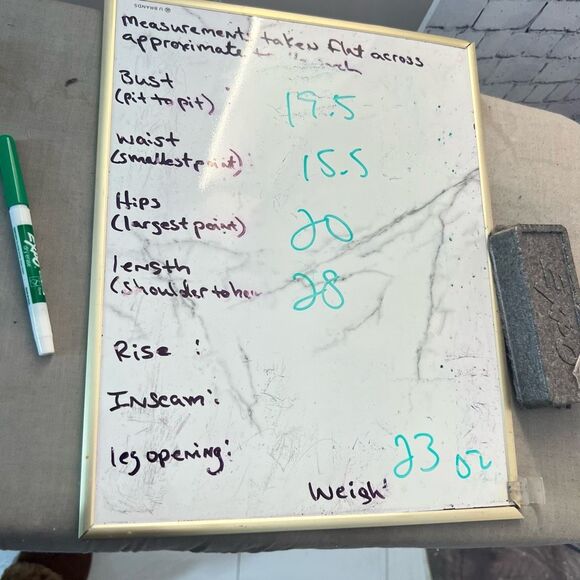 U BRANDS
Measurements taken flat across
approximate
Bust
(pit to pit) 19.5
waist
(smallest point) 15.5
Hips
(largest point) 20
length
(shoulder to he 28
Rise :
Inseam:
leg opening:
23 oz
Weigh
EXPO